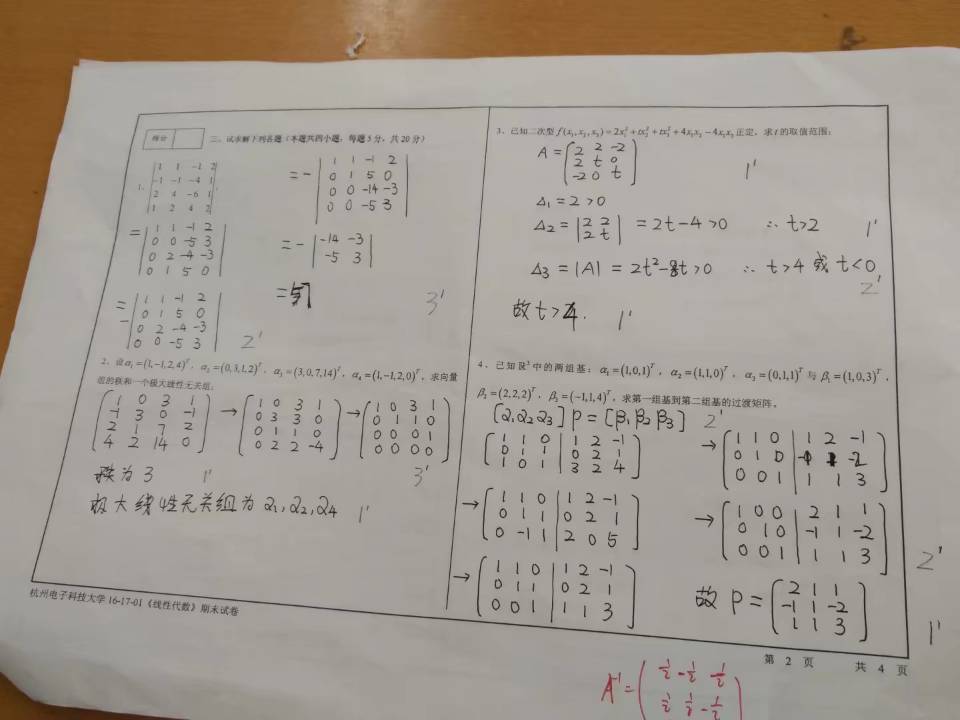 得分
三、试求解下列各题(本题共四小题,每题5分,共20分)
1、
| 1 1 -1 2 |
| -1 -1 -4 1 |
| 2 4 -6 1 |
| 1 2 4 2 |
= | 1 1 -1 2 |
| 0 0 -5 3 |
| 0 2 -4 -3 |
| 0 1 5 0 |
= - | 1 1 -1 2 |
| 0 1 5 0 |
| 0 2 -4 -3 |
| 0 0 -5 3 |
2'
= - | 1 1 -1 2 |
| 0 1 5 0 |
| 0 0 -14 -3 |
| 0 0 -5 3 |
= - | -14 -3 |
| -5 3 |
=57
3'
2、设α₁=(1,-1,2,4)ᵀ,α₂=(0,3,1,2)ᵀ,α₃=(3,0,7,14)ᵀ,α₄=(1,-1,2,0)ᵀ,求向量
组的秩和一个极大线性无关组:
( 1 0 3 1 ) → ( 1 0 3 1 ) → ( 1 0 3 1 )
( -1 3 0 -1 ) ( 0 3 3 0 ) ( 0 1 1 0 )
( 2 1 7 2 ) ( 0 1 1 0 ) ( 0 0 0 1 )
( 4 2 14 0 ) ( 0 2 2 -4 ) ( 0 0 0 0 )
秩为3 1' 3'
极大线性无关组为 α₁, α₂, α₄ 1'
杭州电子科技大学 16-17-01《线性代数》期末试卷
3、已知二次型 f(x₁,x₂,x₃)=2x₁²+tx₂²+tx₃²+4x₁x₂-4x₁x₃正定,求t的取值范围:
A = ( 2 2 -2 )
( 2 t 0 )
( -2 0 t )
1'
Δ₁=2>0
Δ₂= | 2 2 | =2t-4>0 ∴t>2 1'
| 2 t |
Δ₃=|A|=2t²-8t>0 ∴t>4或t<0
2'
故t>4. 1'
4、已知R³中的两组基:α₁=(1,0,1)ᵀ,α₂=(1,1,0)ᵀ,α₃=(0,1,1)ᵀ与β₁=(1,0,3)ᵀ,
β₂=(2,2,2)ᵀ,β₃=(-1,1,4)ᵀ,求第一组基到第二组基的过渡矩阵。
[α₁α₂α₃]P=[β₁β₂β₃] 2'
( 1 1 0 | 1 2 -1 )
( 0 1 1 | 0 2 1 )
( 1 0 1 | 3 2 4 )
→ ( 1 1 0 | 1 2 -1 )
( 0 1 1 | 0 2 1 )
( 0 -1 1 | 2 0 5 )
→ ( 1 1 0 | 1 2 -1 )
( 0 1 1 | 0 2 1 )
( 0 0 1 | 1 1 3 )
→ ( 1 1 0 | 1 2 -1 )
( 0 1 0 | -1 1 -2 )
( 0 0 1 | 1 1 3 )
→ ( 1 0 0 | 2 1 1 )
( 0 1 0 | -1 1 -2 )
( 0 0 1 | 1 1 3 )
2'
故 P= ( 2 1 1 )
( -1 1 -2 )
( 1 1 3 )
1'
第 2 页 共 4 页
A⁻¹= ( 1/2 -1/2 1/2 )
( 1/2 1/2 -1/2 )